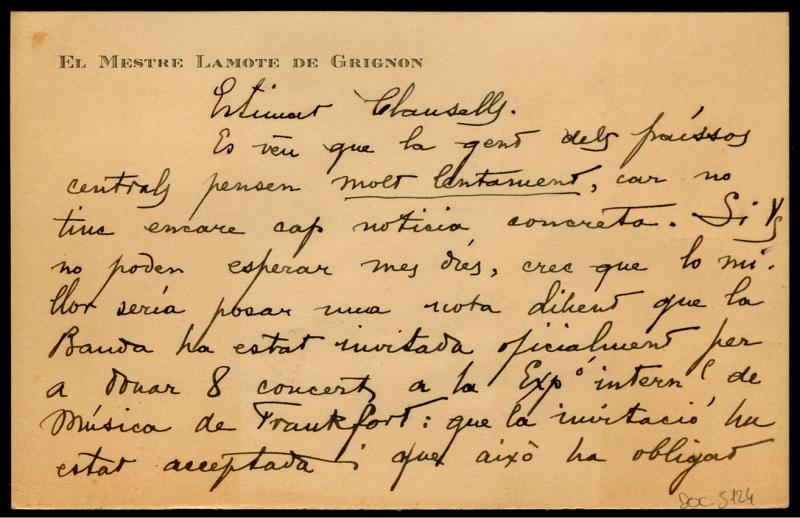 El Mestre Lamote de Grignon
Estimat Clausells.
Es veu que la gent dels països
centrals pensen molt lentament, car no
tinc encare cap noticia concreta. Si Vs
no poden esperar mes dies, crec que lo mi-
llor sería posar una nota dihent que la
Banda ha estat invitada oficialment per
a donar 8 concerts a la Expº internˡ de
Música de Frankfort: que la invitació ha
estat acceptada i que aixô ha obligat
DOC-5124